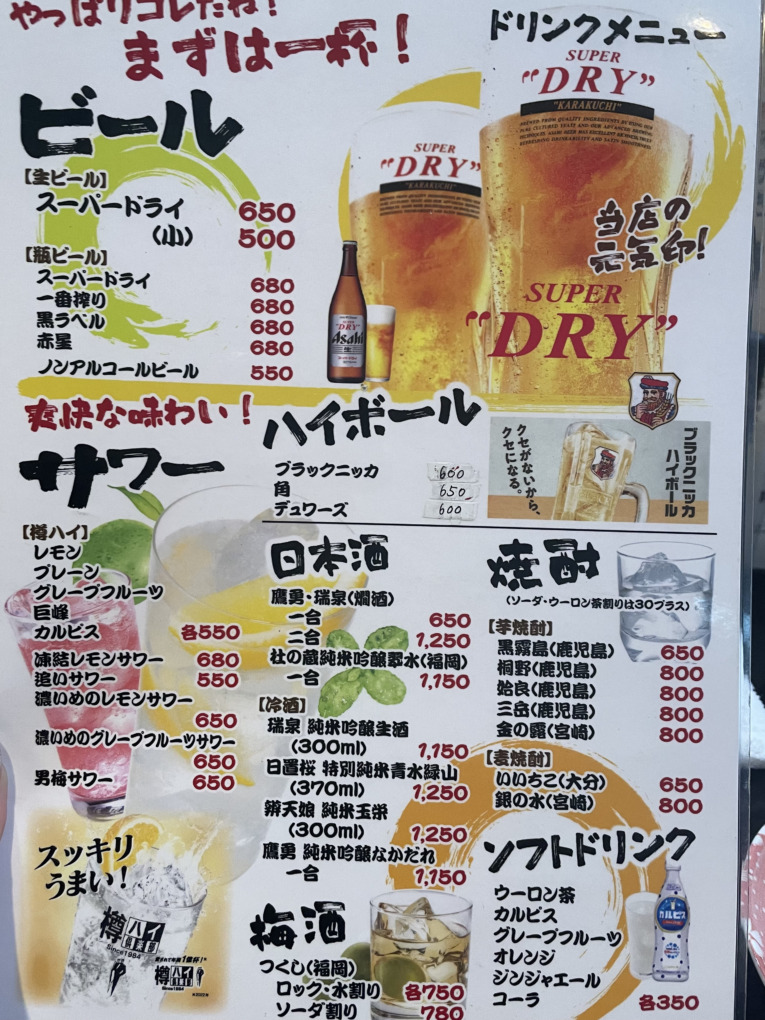 やっぱりコレだね！
まずは一杯！
ドリンクメニュー
SUPER
"DRY"
"KARAKUCHI"
SUPER
"DRY"
"KARAKUCHI"
当店の
元気印！
SUPER
"DRY"
SUPER
"DRY"
Asahi
ビール
【生ビール】
スーパードライ 650
（小） 500
【瓶ビール】
スーパードライ 680
一番搾り 680
黒ラベル 680
赤星 680
ノンアルコールビール 550
爽快な味わい！
サワー
【樽ハイ】
レモン
プレーン
グレープフルーツ
巨峰
カルピス 各550
凍結レモンサワー 680
追いサワー 550
濃いめのレモンサワー
650
濃いめのグレープフルーツサワー
650
男梅サワー 650
スッキリ
うまい！
樽ハイ
倶楽部
Since1984
樽ハイ
倶楽部
Since1984
ハイボール
ブラックニッカ 660
角 650
デュワーズ 600
クセがないから、
クセになる。
ブラックニッカ
ハイボール
日本酒
鷹勇・瑞泉（燗酒）
一合 650
二合 1,250
杜の蔵純米吟醸翠水（福岡）
一合 1,150
【冷酒】
瑞泉 純米吟醸生酒
（300ml） 1,150
日置桜 特別純米青水緑山
（370ml） 1,250
辨天娘 純米玉栄
（300ml） 1,250
鷹勇 純米吟醸なかだれ
一合 1,150
梅酒
つくし（福岡）
ロック・水割り 各750
ソーダ割り 780
焼酎
（ソーダ・ウーロン茶割りは30プラス）
【芋焼酎】
黒霧島（鹿児島） 650
桐野（鹿児島） 800
姶良（鹿児島） 800
三岳（鹿児島） 800
金の露（宮崎） 800
【麦焼酎】
いいちこ（大分） 650
銀の水（宮崎） 800
ソフトドリンク
ウーロン茶
カルピス
グレープフルーツ
オレンジ
ジンジャエール
コーラ 各350
カルピス